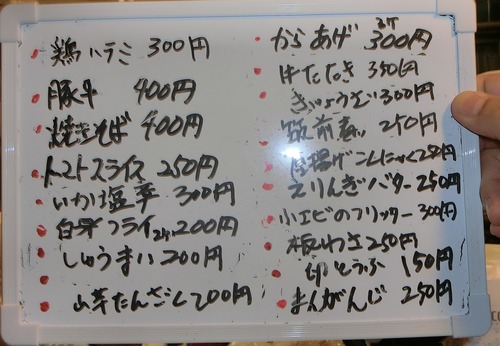 鶏ハラミ 300円
豚平 400円
焼きそば 400円
トマトスライス 250円
いか塩辛 300円
白身フライ 2ケ 200円
しゅうまい 200円
山芋たんざく 200円
からあげ 3ケ 300円
牛たたき 350円
ぎょうざ 300円
筑前煮 250円
揚げこんにゃく
えりんぎバター 250円
小エビのフリッター 300円
板わさ 250円
冷とうふ 150円
まんがんじ 250円